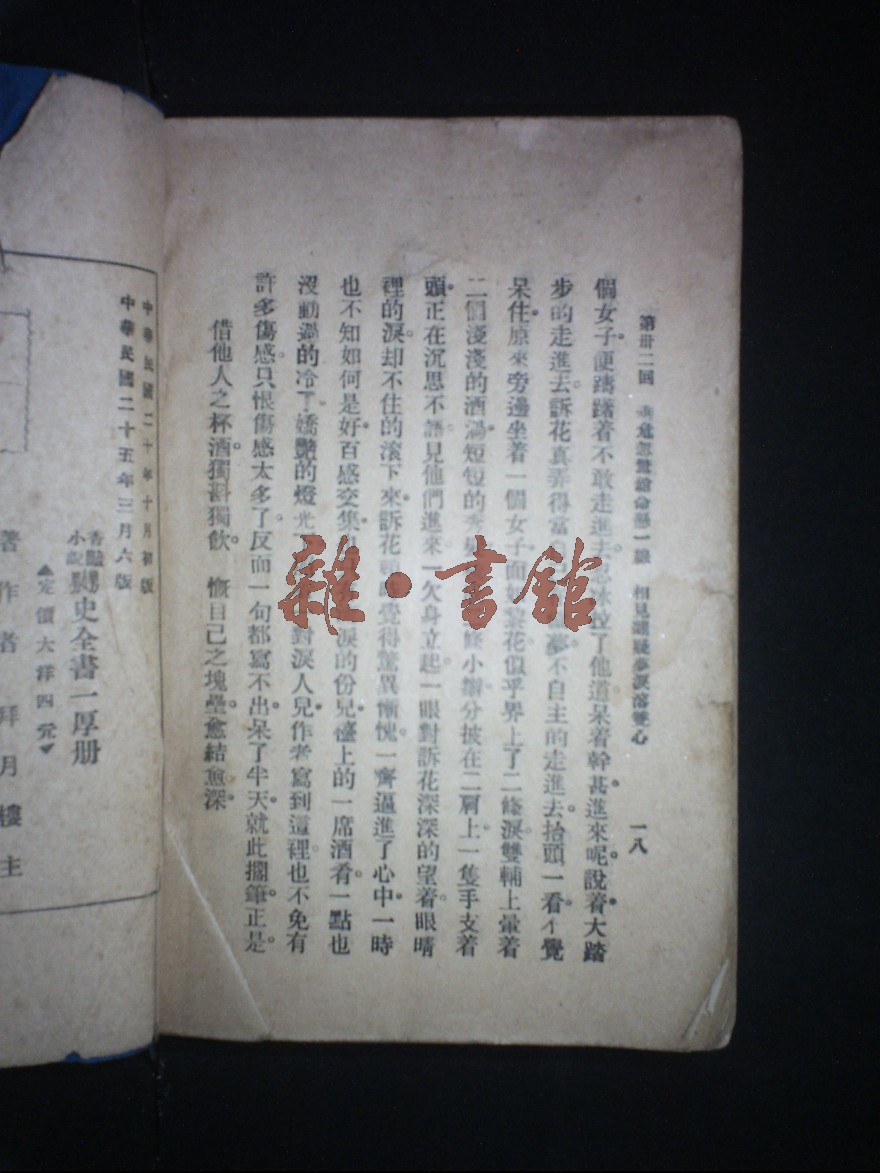 第卅二回 相見 疑夢淚落 心 一八
個女子便躊躇着不敢走進去 拉了他道呆着幹甚進來呢說着大踏
步的走進去訴花真弄得當 夢不自主的走進去抬頭一看不覺
呆住原來旁邊坐着一個女子面 花似乎界上了二條淚雙輔上暈着
二個淺淺的酒渦短短的秀 小辮分披在二肩上一隻手支着
頭正在沉思不語見他們進來一欠身立起一眼對訴花深深的望着眼睛
裡的淚却不住的滾下來訴花 覺得驚異慚愧一齊逼進了心中一時
也不知如何是好百感交集 淚的份兒檯上的一席酒肴一點也
沒動過的冷了嬌艷的燈光 對淚人兒作者寫到這裡也不免有
許多傷感只恨傷感太多了反而一句都寫不出呆了半天就此擱筆正是
借他人之杯酒獨斟獨飲 慨自己之塊壘愈結愈深
中華民國二十年十月初版
中華民國二十五年三月六版
香艷小說 史全書一厚册
▲定價大洋四元▼
著作者 拜月樓主
雜·書舘